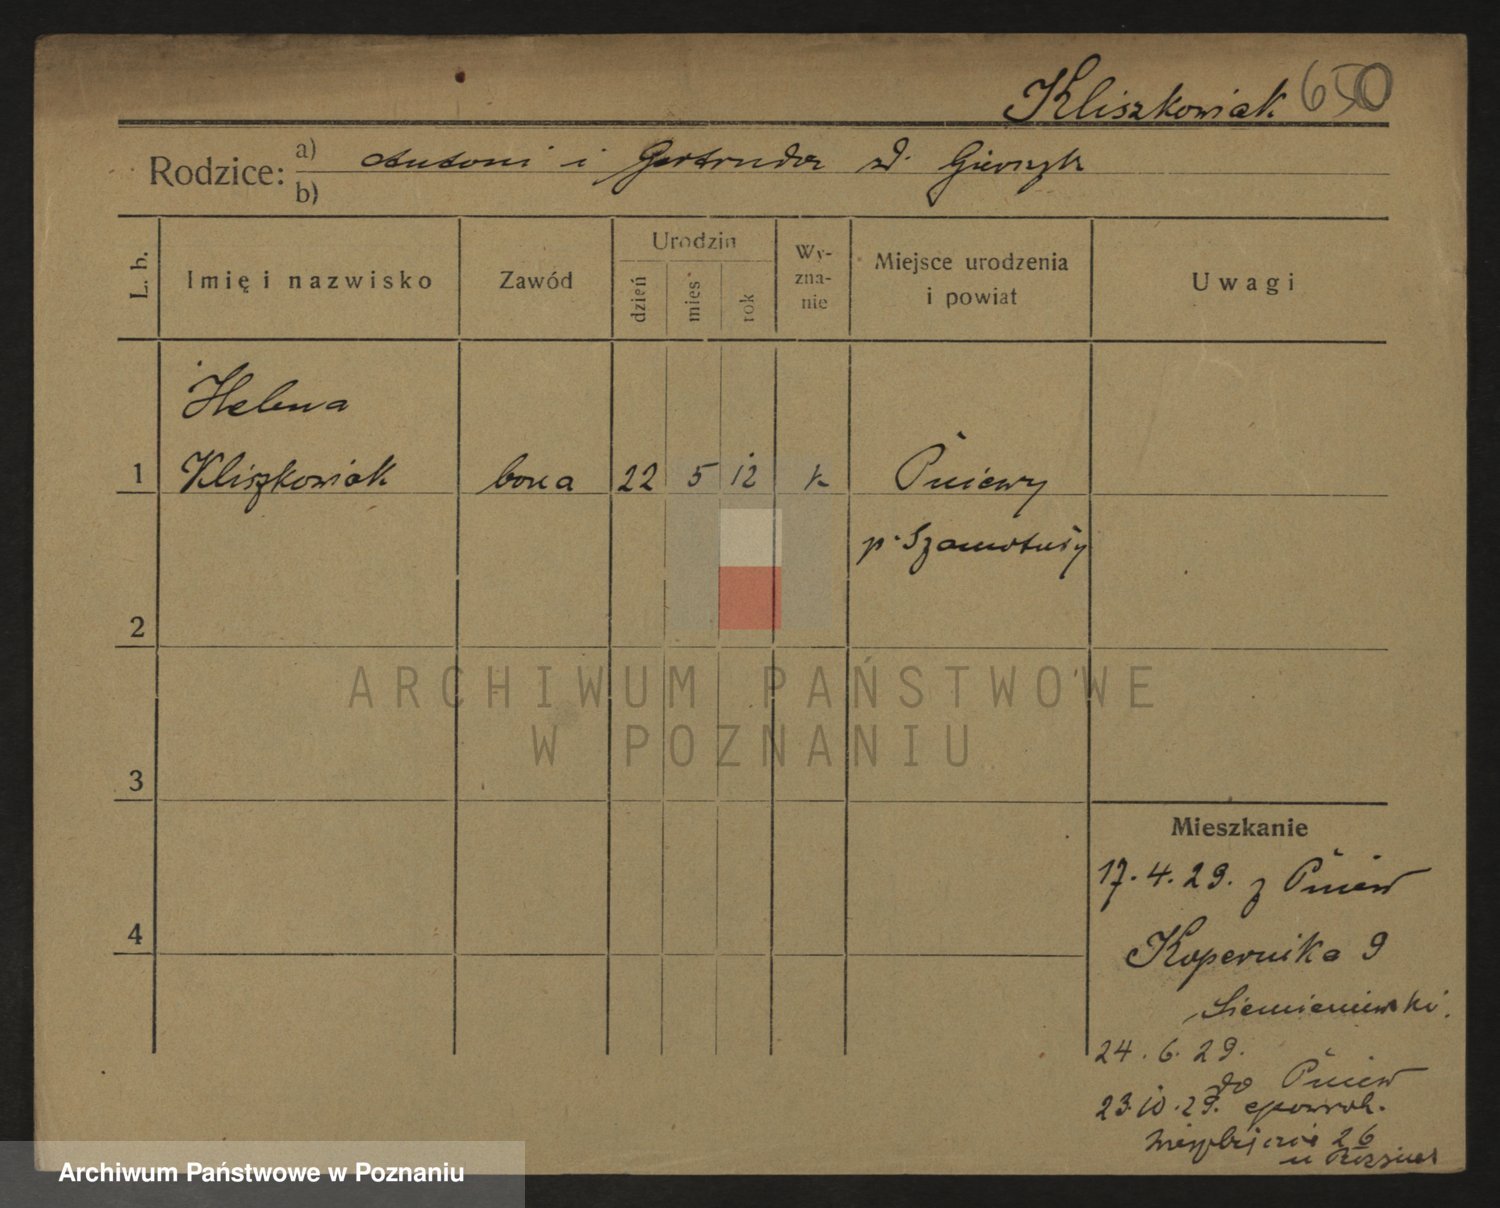 Kliszkowiak 650
Rodzice: a) Antoni i Gertruda
b)
L. b.
Imię i nazwisko
Zawód
Urodzin
dzień
mies
rok
Wy-
zna-
nie
Miejsce urodzenia
i powiat
Uwagi
Helena
1 Kliszkowiak bona 22 5 12 k Pniewy
p. Szamotuły
2
3
4
Mieszkanie
17.4.29. z Pniew
Kopernika 9
Siemieniewski.
24.6.29.
do Pniew
23.10.29. spowrot.
26
ARCHIWUM PAŃSTWOWE
W POZNANIU
Archiwum Państwowe w Poznaniu